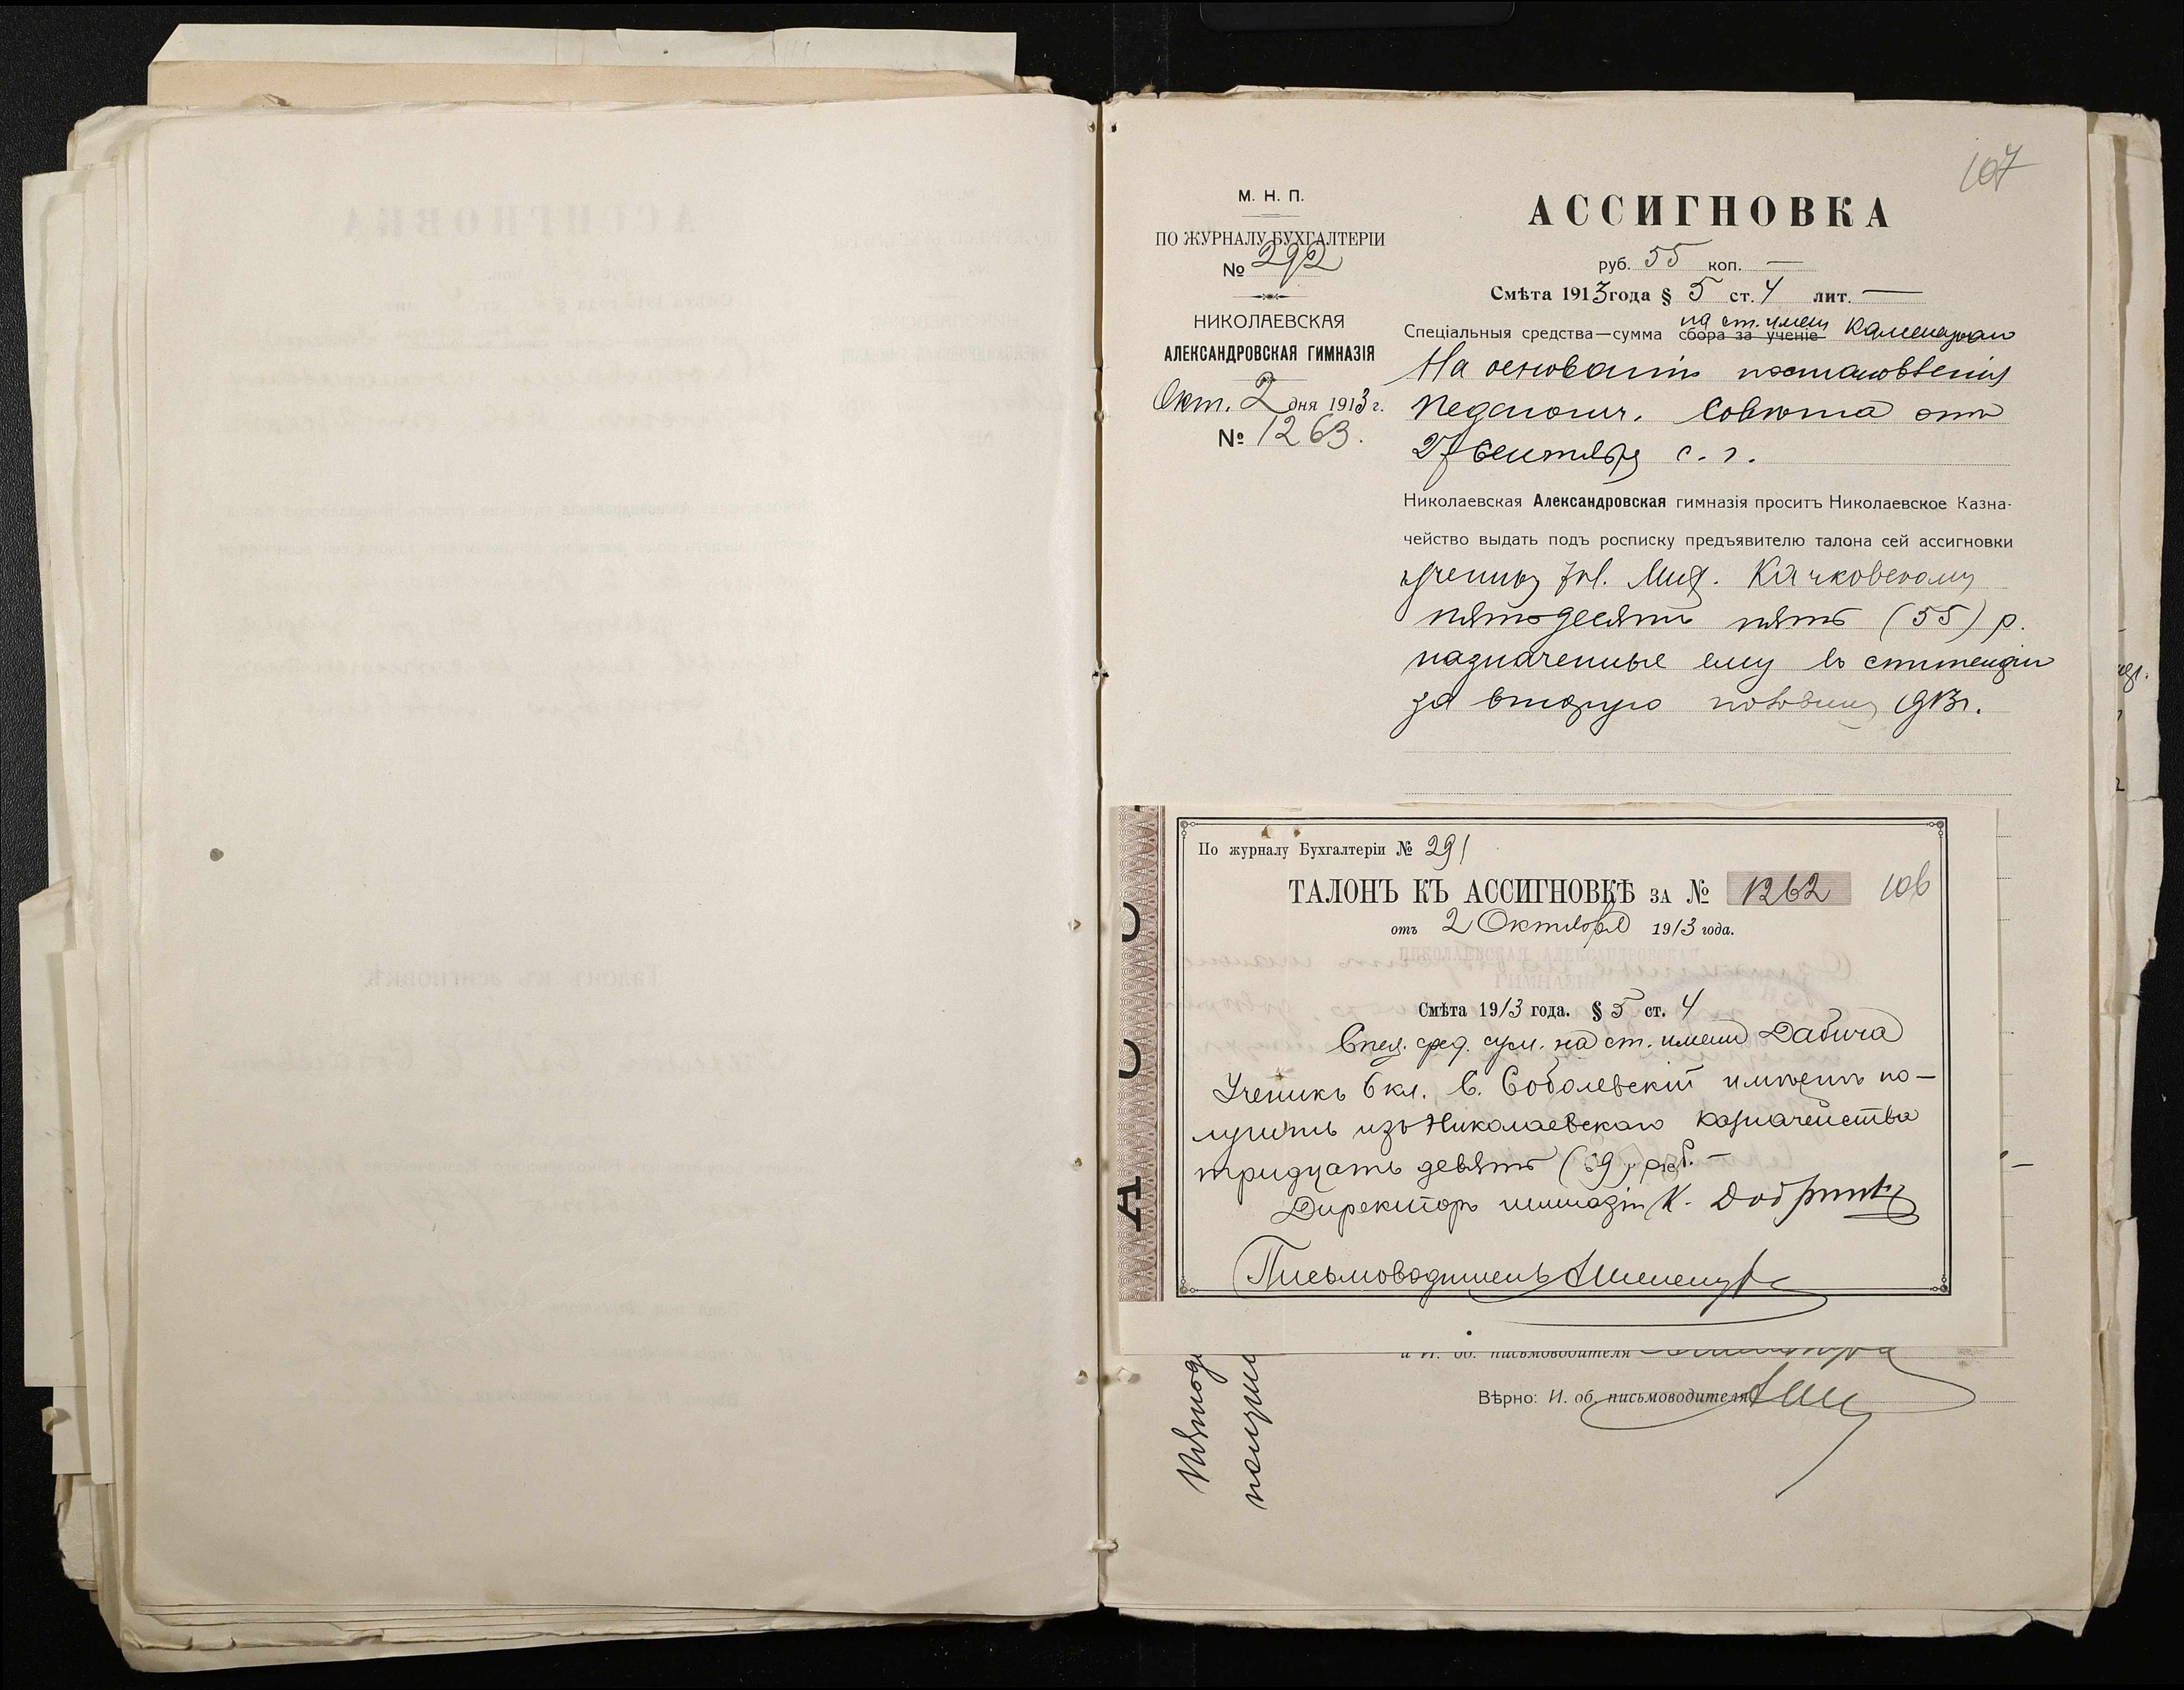 107
М. Н. П.
ПО ЖУРНАЛУ БУХГАЛТЕРІИ
№ 292
НИКОЛАЕВСКАЯ
АЛЕКСАНДРОВСКАЯ ГИМНАЗІЯ
Окт. 2 дня 1913 г.
№ 1263.
АССИГНОВКА
руб. 55 коп. —
Смѣта 1913 года § 5 ст. 4 лит. —
на ст. имени
Спеціальныя средства—сумма сбора за ученіе
На основаніи постановленія
Педагогич. Совѣта отъ
27 Сентября с. г.
Николаевская Александровская гимназія проситъ Николаевское Казна-
чейство выдать подъ росписку предъявителю талона сей ассигновки
ученику кл. Мих. Качковскому
пятьдесятъ пять (55) р.
назначенные ему въ стипендіи
за вторую половину 1913 г.
По журналу Бухгалтеріи № 291
ТАЛОНЪ КЪ АССИГНОВКѢ ЗА № 1262 106
отъ 2 Октября 1913 года.
НИКОЛАЕВСКАЯ АЛЕКСАНДРОВСКАЯ
ГИМНАЗІЯ
Смѣта 1913 года. § 5 ст. 4
Спец. сред. сум. на ст. имени Дабича
Ученикъ 6 кл. С. Соболевскій имѣетъ по-
лучить изъ Николаевскаго Казначейства
тридцать девять (39) руб. —
Директоръ гимназіи К.
Письмоводитель
и И. об. письмоводителя
Вѣрно: И. об. письмоводителя